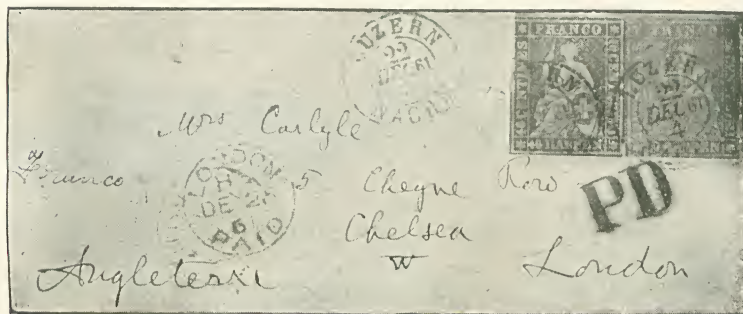 LUZERN
22
DEC 61
NACHM
FRANCO
FRANCO
LUZERN
DEC 61
4
Mrs Carlyle
franco
LONDON
DE
6
PAID
5 Cheyne Row
PD
Chelsea
W
Angleterre
London